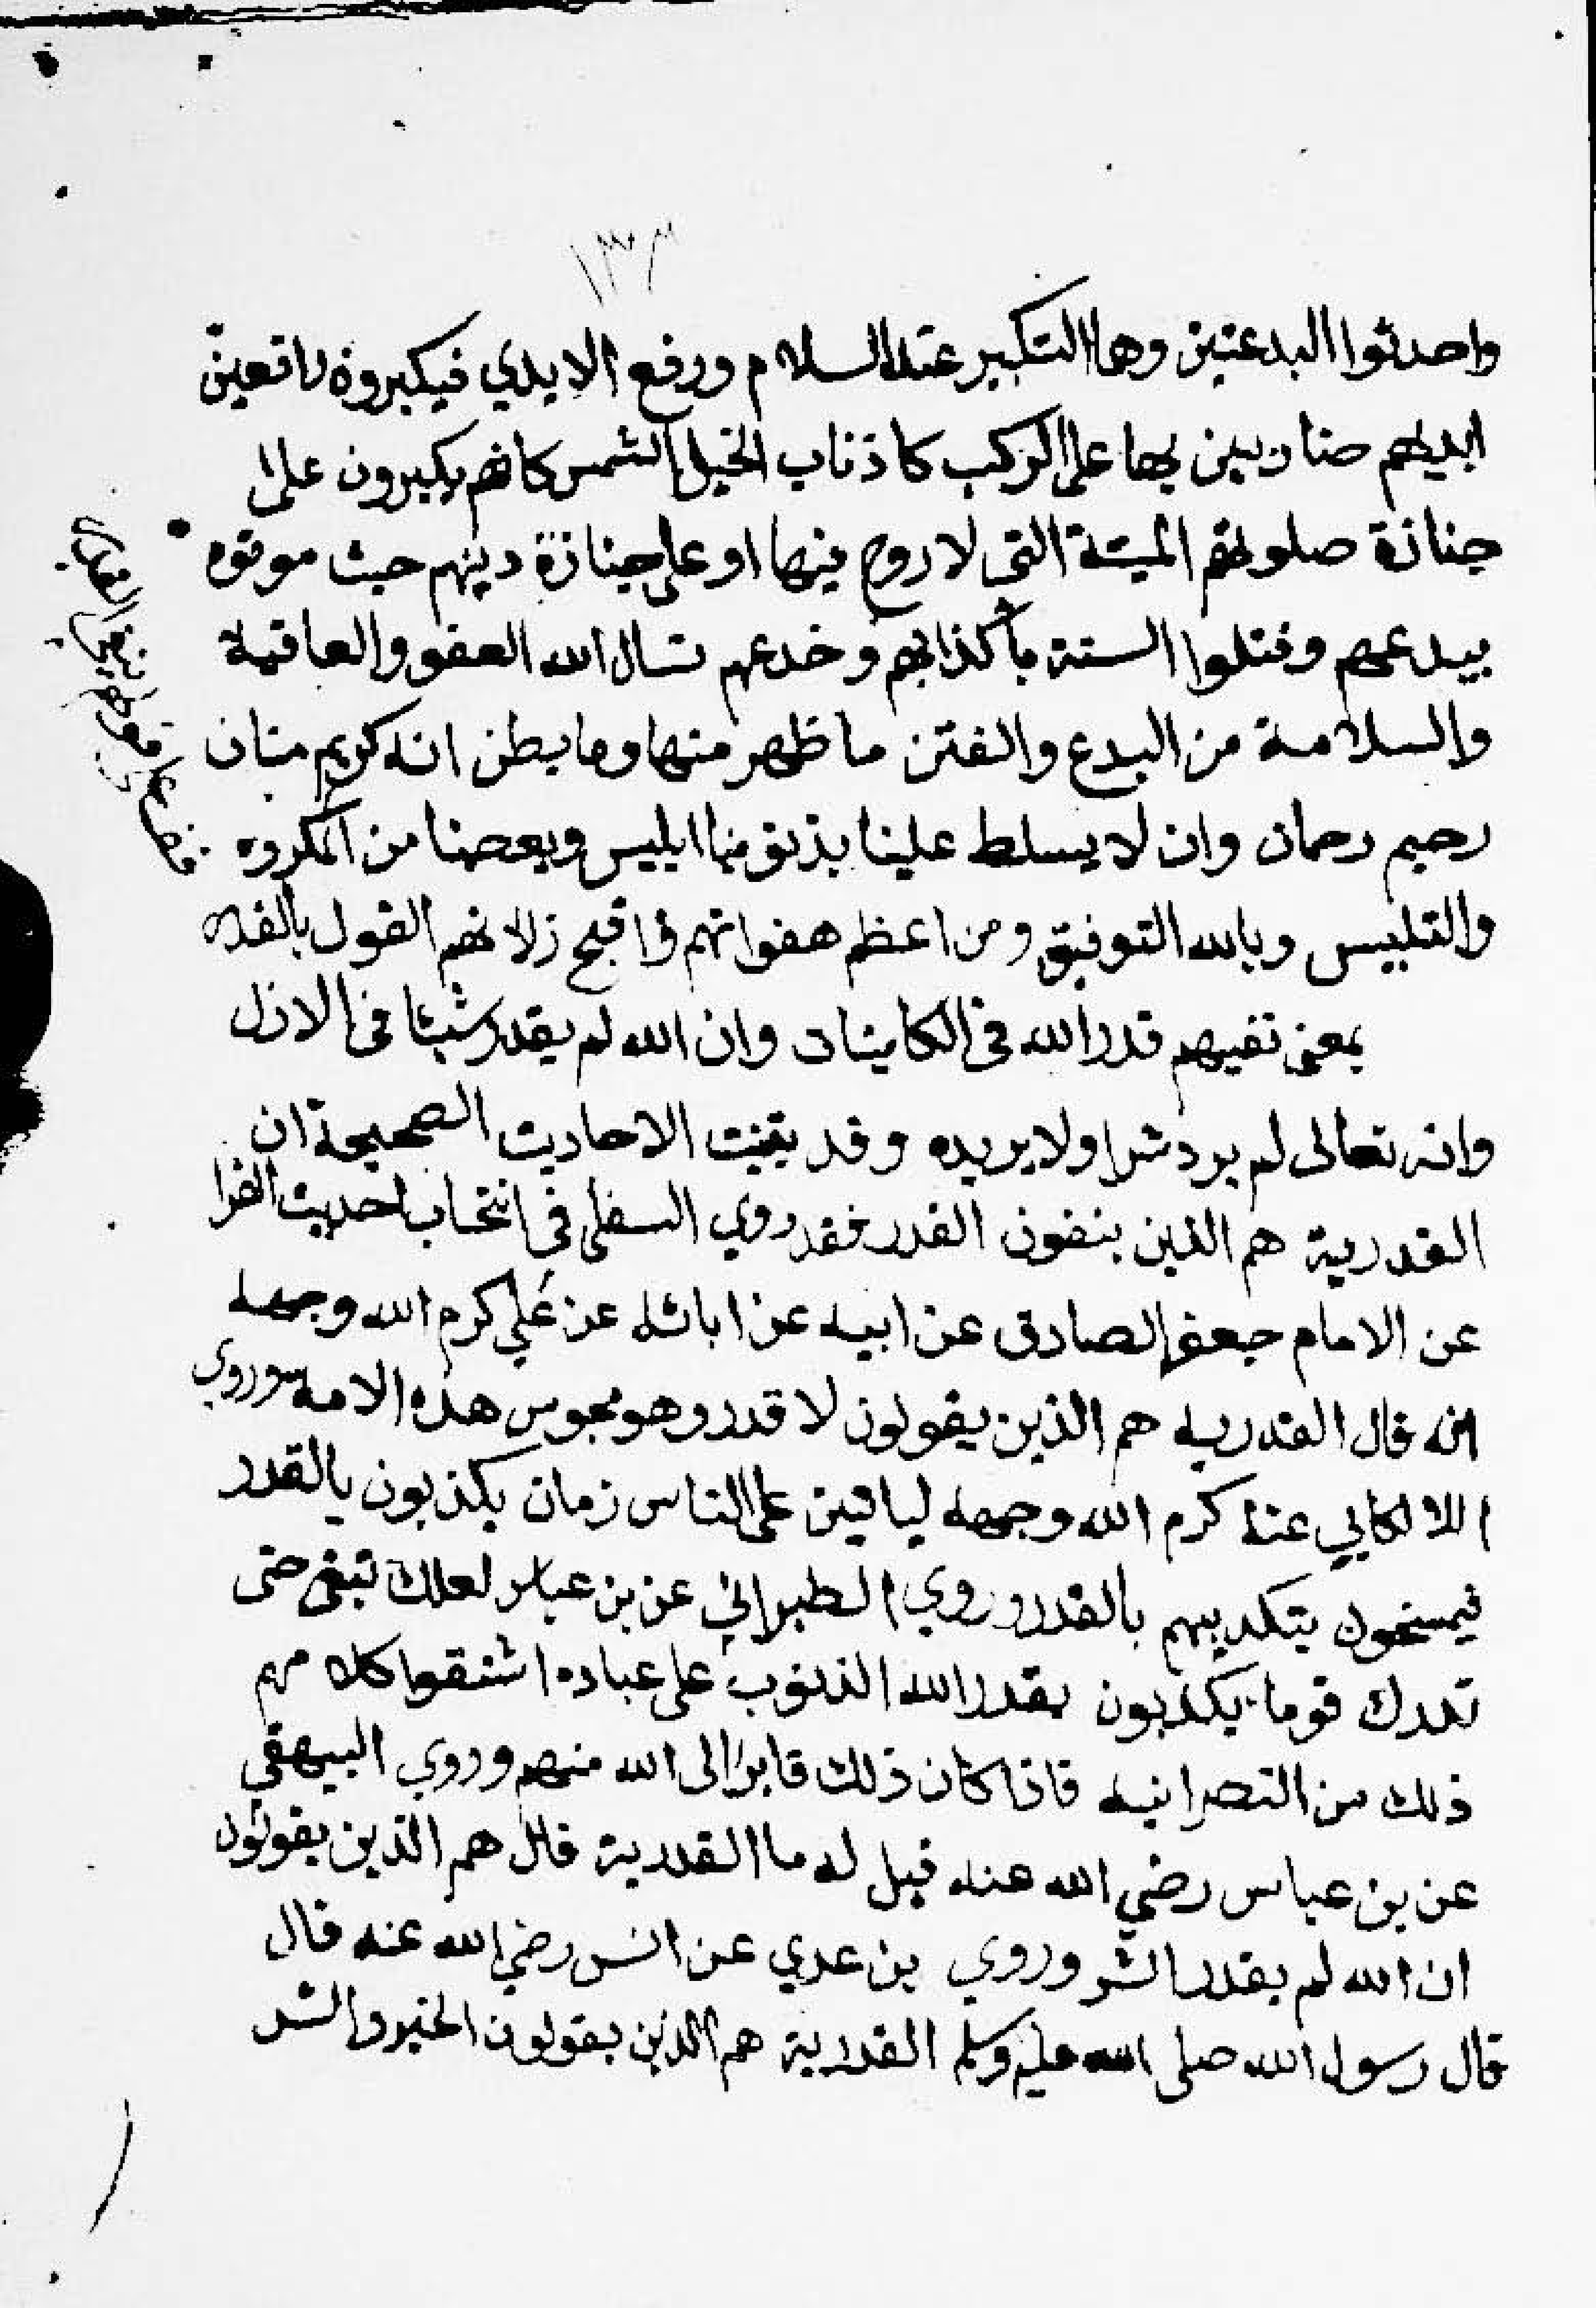 ١٣٣
واحدثوا البدعتين وهما التكبير عند السلام ورفع الايدي فيكبروه رافعين
ايديهم ضاربين بها على الركب كاذناب الخيل الشمس كانهم يكبرون على
جنازة صلوتهم الميتة التي لا روح فيها او على جنازة دينهم حيث موتوه
ببدعهم وقتلوا السنة بأكذابهم وخدعهم نسال الله العفو والعافية
والسلامة من البدع والفتن ما ظهر منها وما بطن انه كريم منان
رحيم رحمان وان لا يسلط علينا بذنوبنا ابليس ويعصمنا من المكروه
والتلبيس وبالله التوفيق ومن اعظم هفواتهم واقبح زلاتهم القول بالقدر
بمعنى نفيهم قدر الله في الكاينات وان الله لم يقدر شيئا في الازل
وانه تعالى لم يرد شرا ولا يريده وقد بينت الاحاديث الصحيحة ان
القدرية هم الذين ينفون القدر فقد روي السفلى في انتخاب احديث الفرا
عن الامام جعفر الصادق عن ابيه عن ابائه عن علي كرم الله وجهه
انه قال القدريه هم الذين يقولون لا قدر وهو مجوس هذه الامة وروي
اللالكايي عنه كرم الله وجهه لياتين على الناس زمان يكذبون بالقدر
فيمسخون بتكذيبهم بالقدر وروي الطبراني عن بن عباس لعلك تبقى حتى
تدرك قوما يكذبون بقدر الله الذنوب على عباده اشتقوا كلامهم
ذلك من النصرانيه فاذا كان ذلك فابرا الى الله منهم وروي البيهقي
عن بن عباس رضي الله عنه قيل له ما القدرية قال هم الذين يقولون
ان الله لم يقدر الشر وروي بن عدي عن انس رضي الله عنه قال
قال رسول الله صلى الله عليه وسلم القدرية هم الذين يقولون الخير والشر
قولهم بنفي القدر